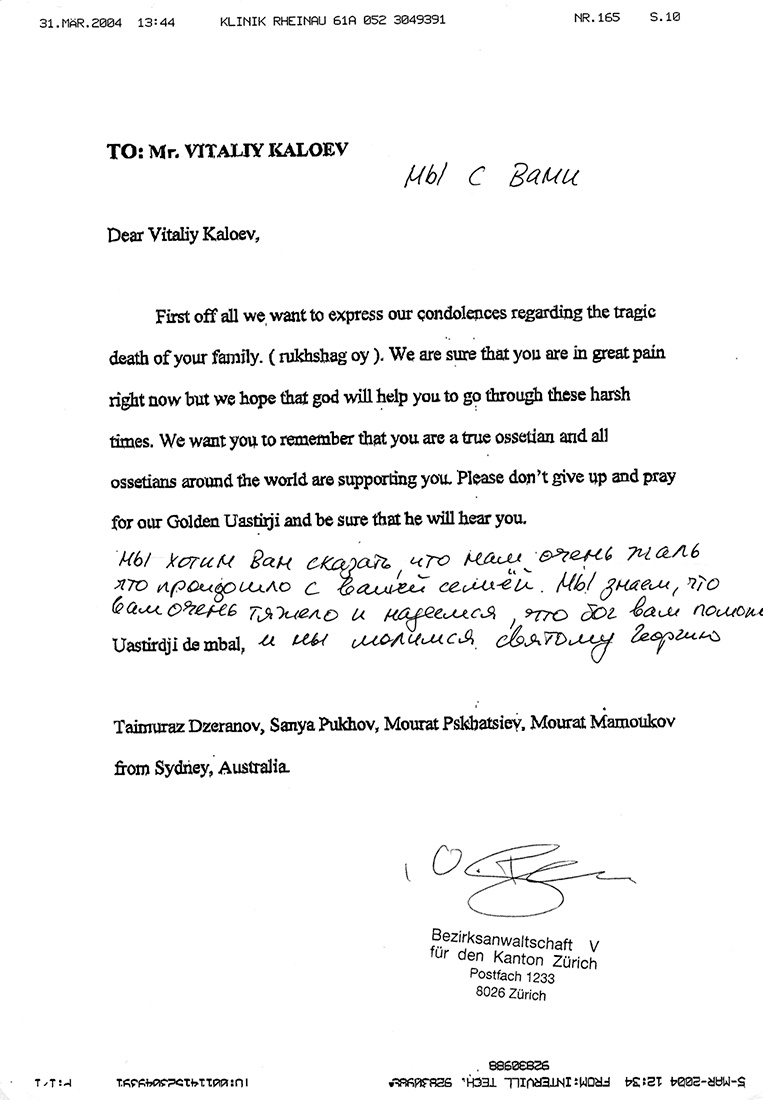 31.MÄR.2004 13:44 KLINIK RHEINAU 61A 052 3049391 NR.165 S.10
TO: Mr. VITALIY KALOEV
Мы с Вами
Dear Vitaliy Kaloev,
First off all we want to express our condolences regarding the tragic
death of your family. ( rukhshag oy ). We are sure that you are in great pain
right now but we hope that god will help you to go through these harsh
times. We want you to remember that you are a true ossetian and all
ossetians around the world are supporting you. Please don't give up and pray
for our Golden Uastirji and be sure that he will hear you.
Мы хотим Вам сказать, что нам очень жаль
что произошло с вашей семьёй. Мы знаем, что
вам очень тяжело и надеемся, что бог вам
Uastirdji de mbal, и мы молимся святому Георгию
Taimuraz Dzeranov, Sanya Pukhov, Mourat Pskhatsiev, Mourat Mamoukov
from Sydney, Australia.
Bezirksanwaltschaft V
für den Kanton Zürich
Postfach 1233
8026 Zürich
92830988
5-MAR-2004 12:34 FROM:INTERVILL TECH. 92830988
P:1/1